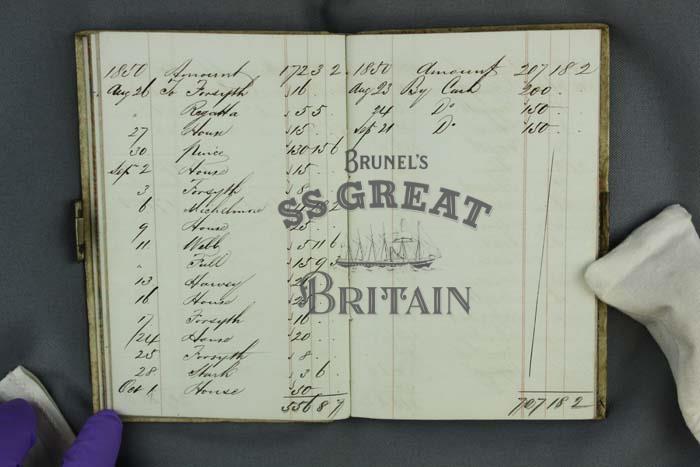 1850 Amount 172 3 2
Aug 26 To Forsyth 16 . .
" Regatta 5 5 .
27 House 15 . .
30 130 15 6
Sep 2 House 15 . .
3 Forsyth 8 . .
6 Michelmore 2
9 House 25 . .
11 Webb 5 11 6
" Full 15 9 3
13 Harvey
16 House
17 Forsyth 16 . .
24 House 20 . .
25 Forsyth 8 . .
28 Stark 3 6
Oct 1 House 50 . .
556 8 7
1850 Amount 207 18 2
Aug 23 By Cash 200 . .
24 Do 150 . .
Sep 21 Do 150 . .
707 18 2
BRUNEL'S
SS GREAT
BRITAIN